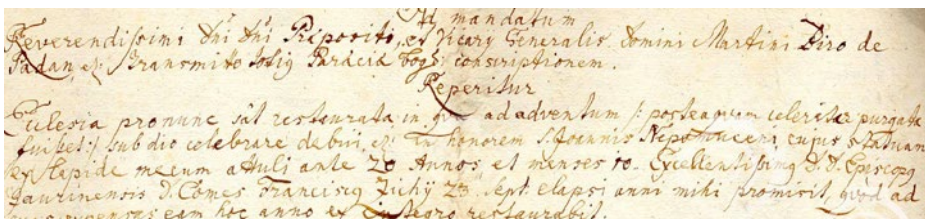 Ad mandatum
Reverendissimi Dni Dni Præpositi, et Vicary Generalis Domini Martini Biro de
Padan, etc. Transmitto totius Parociæ conscriptionem.
Reperitur
Eclesia pronunc sat restaurata in qva ad adventum /: posteaqvam celeriter purgata
fuisset :/ sub dio celebrare debui, etc. in honorem S. Joannis Nepomuceni, cujus statuam
ex lapide mecum attuli ante 20 Annos et menses 10. Excellentissimq D. D. Episcopq
Jaurinensis D. Comes Franciscq Zichÿ 23. Sept. elapsi anni mihi promisit, qvod ad
expensas eam hoc anno ex integro restaurabit.